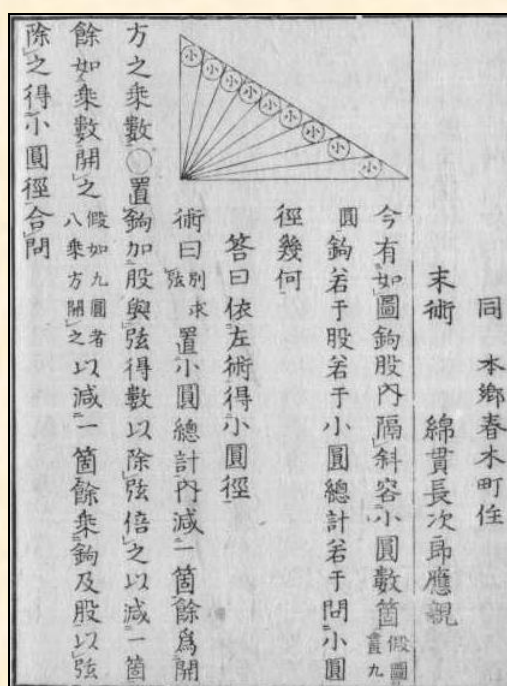 同 本鄉春木町住
末術 綿貫長次郎應親
今有如圖鈎股內隔斜容小圓數箇 假畫九圖
圓鈎若干股若干小圓總計若干問小圓
徑幾何
答曰依左術得小圓徑
術曰 別求弦 置小圓總計內減一箇餘爲開
方之乘數○置鈎加股與弦得數以除弦倍之以減一箇
餘如乘數開之 假如九圓者八乘方開之 以減一箇餘乘鈎及股以弦
除之得小圓徑合問
小
小
小
小
小
小
小
小
小